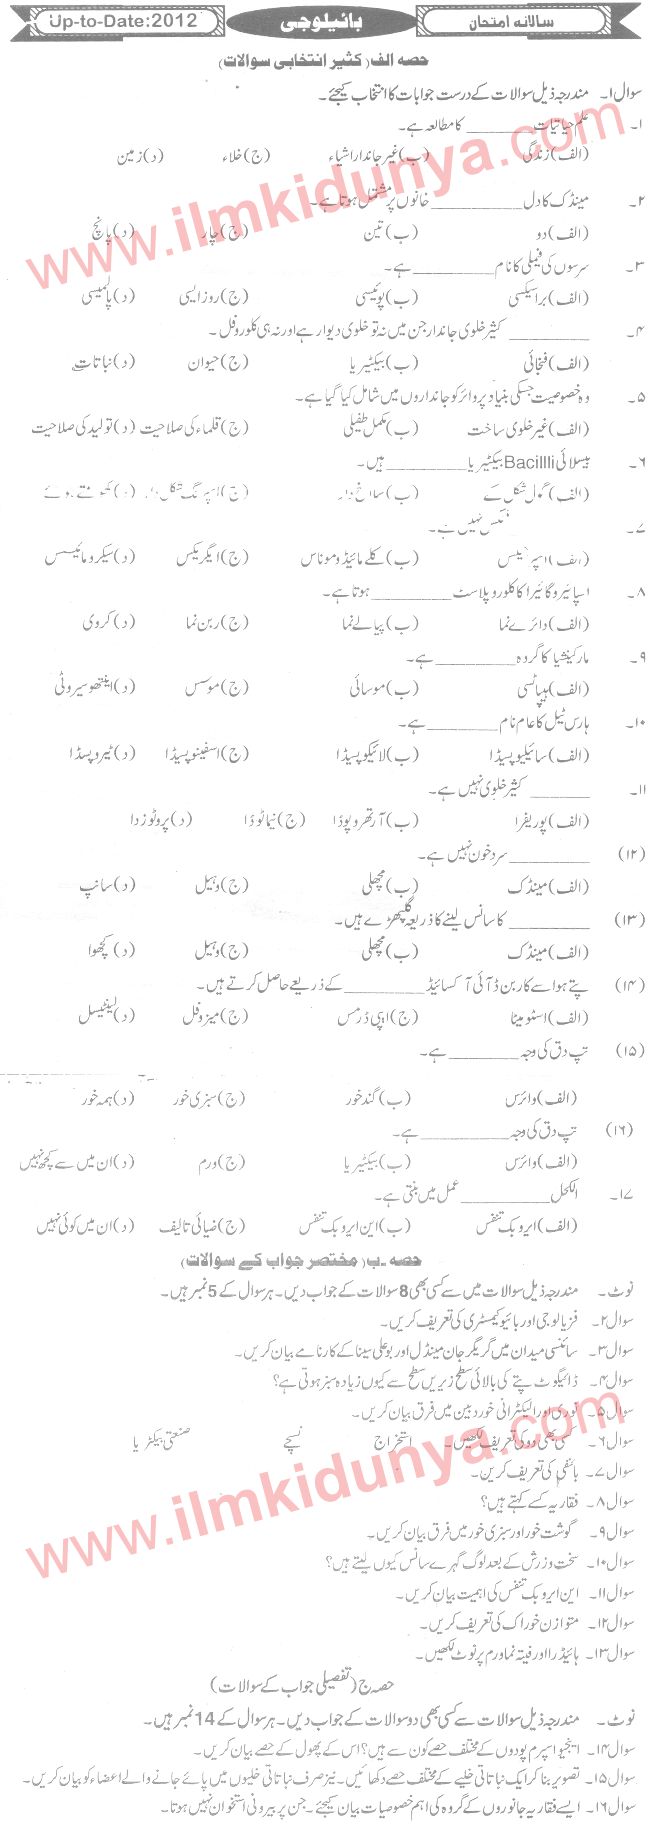 سالانہ امتحان
بائیلوجی
Up-to-Date:2012
حصہ الف (کثیر انتخابی سوالات)
سوال۱۔ مندرجہ ذیل سوالات کے درست جوابات کا انتخاب کیجئے۔
۱۔ علم حیاتیات ________ کا مطالعہ ہے۔
(الف) زندگی (ب) غیر جاندار اشیاء (ج) خلاء (د) زمین
۲۔ مینڈک کا دل ________ خانوں پر مشتمل ہوتا ہے۔
(الف) دو (ب) تین (ج) چار (د) پانچ
۳۔ سرسوں کی فیملی کا نام ________ ہے۔
(الف) براسیکسی (ب) پوئیسی (ج) روز ایسی (د) پالمیسی
۴۔ ________ کثیر خلوی جاندار جن میں نہ تو خلوی دیوار ہے اور نہ ہی کلوروفل۔
(الف) فنجائی (ب) بیکٹیریا (ج) حیوان (د) نباتات
۵۔ وہ خصوصیت جسکی بنیاد پر وائرکو جانداروں میں شامل کیا گیا ہے۔
(الف) غیر خلوی ساخت (ب) مکمل طفیلی (ج) قلماء کی صلاحیت (د) تولید کی صلاحیت
۶۔ بیسلائی Bacillli بیکٹیریا ________ ہیں۔
(الف) گول شکل کے (ب) (ج) (د)
۷۔ نہیں ہے۔
(الف) (ب) کلے مائیڈوموناس (ج) ایگریکس (د) سیکرومائیسس
۸۔ اسپائیروگائیرا کا کلوروپلاسٹ ________ ہوتا ہے۔
(الف) دائرے نما (ب) پیالے نما (ج) ربن نما (د) کروی
۹۔ مارکینشیا کا گروہ ________ ہے۔
(الف) ہیپاٹسی (ب) موسائی (ج) موسس (د) اینتھوسیروٹی
۱۰۔ ہارس ٹیل کا عام نام ________ ہے۔
(الف) سائیکوپسیڈا (ب) لائیکوپسیڈا (ج) اسفینوپسیڈا (د) ٹیروپسڈا
۱۱۔ ________ کثیر خلوی نہیں ہے۔
(الف) پوریفرا (ب) آرتھروپوڈا (ج) نیماٹوڈا (د) پروٹوزدا
(۱۲) ________ سرد خون نہیں ہے۔
(الف) مینڈک (ب) مچھلی (ج) وہیل (د) سانپ
(۱۳) ________ کا سانس لینے کا ذریعہ گلپھڑے ہیں۔
(الف) مینڈک (ب) مچھلی (ج) وہیل (د) کچھوا
(۱۴) پتے ہوا سے کاربن ڈآئی آکسائیڈ ________ کے ذریعے حاصل کرتے ہیں۔
(الف) اسٹومیٹا (ج) اپی ڈرمس (ج) میزوفل (د) لینٹیسل
(۱۵) تپ دق کی وجہ ________ ہے۔
(الف) وائرس (ب) گند خور (ج) سبزی خور (د) ہمہ خور
(۱۶) تپ دق کی وجہ ________ ہے۔
(الف) وائرس (ب) بیکٹیریا (ج) ورم (د) ان میں سے کچھ نہیں
۱۷۔ الکحل ________ عمل میں بنتی ہے۔
(الف) ایروبک تنفس (ب) این ایروبک تنفس (ج) ضیائی تالیف (د) ان میں کوئی نہیں
حصہ ۔ب (مختصر جواب کے سوالات)
نوٹ۔ مندرجہ ذیل سوالات میں سے کسی بھی 8 سوالات کے جواب دیں۔ ہر سوال کے 5 نمبر ہیں۔
سوال۲۔ فزیالوجی اور بائیوکیمسٹری کی تعریف کریں۔
سوال۳۔ سائنسی میدان میں گریگر جان مینڈل اور بوعلی سینا کے کارنامے بیان کریں۔
سوال۴۔ ڈائیگوٹ پتے کی بالائی سطح زیریں سطح سے کیوں زیادہ سبز ہوتی ہے؟
سوال۵۔ نوری اور الیکٹرانی خوردبین میں فرق بیان کریں۔
سوال۶۔ کسی بھی دو کی تعریف لکھیں۔ استخراج نسیجے صنعتی بیکٹریا
سوال۷۔ بائنی کی تعریف کرین۔
سوال۸۔ فقاریہ کسے کہتے ہیں؟
سوال۹۔ گوشت خور اور سبزی خور میں فرق بیان کریں۔
سوال۱۰۔ سخت ورزش کے بعد لوگ گہرے سانس کیوں لیتے ہیں؟
سوال۱۱۔ این ایروبک تنفس کی اہمیت بیان کریں۔
سوال۱۲۔ متوازن خوراک کی تعریف کریں۔
سوال۱۳۔ ہائیڈرا اور فیتہ نما ورم پر نوٹ لکھیں۔
حصہ ج (تفصیلی جواب کے سوالات)
نوٹ۔ مندرجہ ذیل سوالات سے کسی بھی دو سوالات کے جواب دیں۔ ہر سوال کے 14 نمبر ہیں۔
سوال۱۴۔ اینجیو اسپرم پودوں کے مختلف حصے کون سے ہیں؟ اس کے پھول کے حصے بیان کریں۔
سوال۱۵۔ تصویر بنا کر ایک نباتاتی خلیے کے مختلف حصے دکھائیں۔ نیز صرف نباتاتی خلیوں میں پائے جانے والے اعضاء کو بیان کریں۔
سوال۱۶۔ ایسے فقاریہ جانوروں کے گروہ کی اہم خصوصیات بیان کیجئے۔ جن پر بیرونی استخوان نہیں ہوتا۔
www.ilmkidunya.com
www.ilmkidunya.com